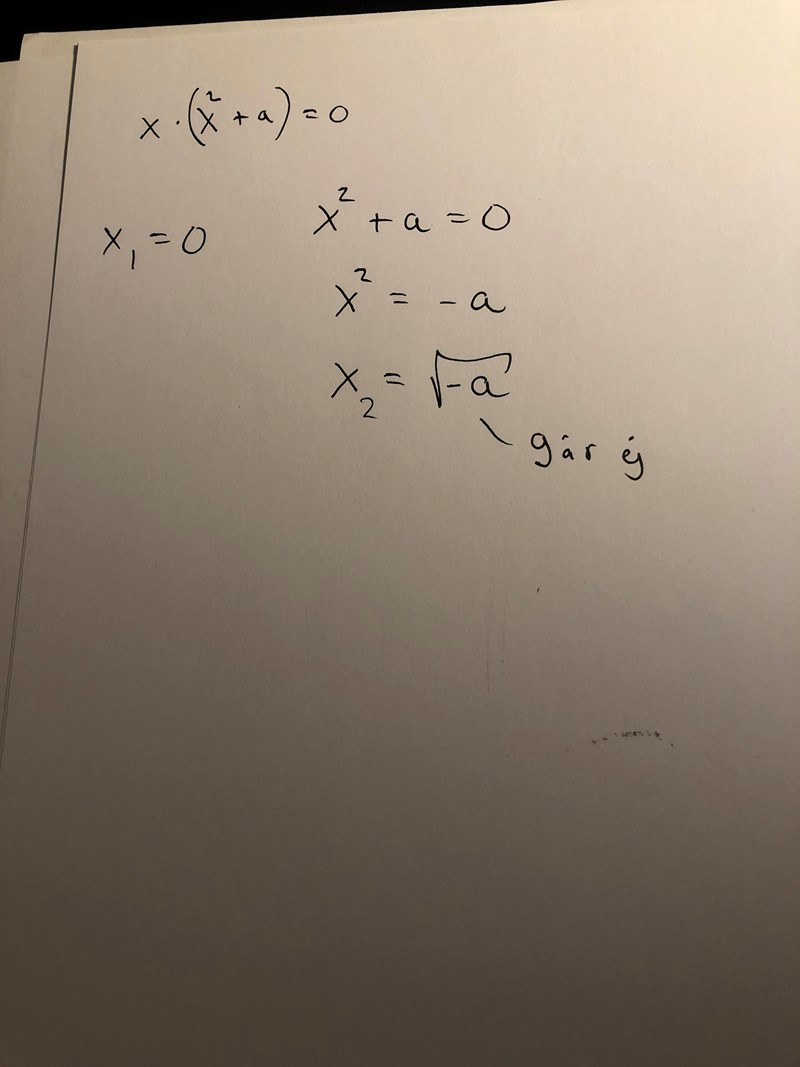 x · (x² + a) = 0
x₁ = 0
x² + a = 0
x² = -a
x₂ = √-a
går ej